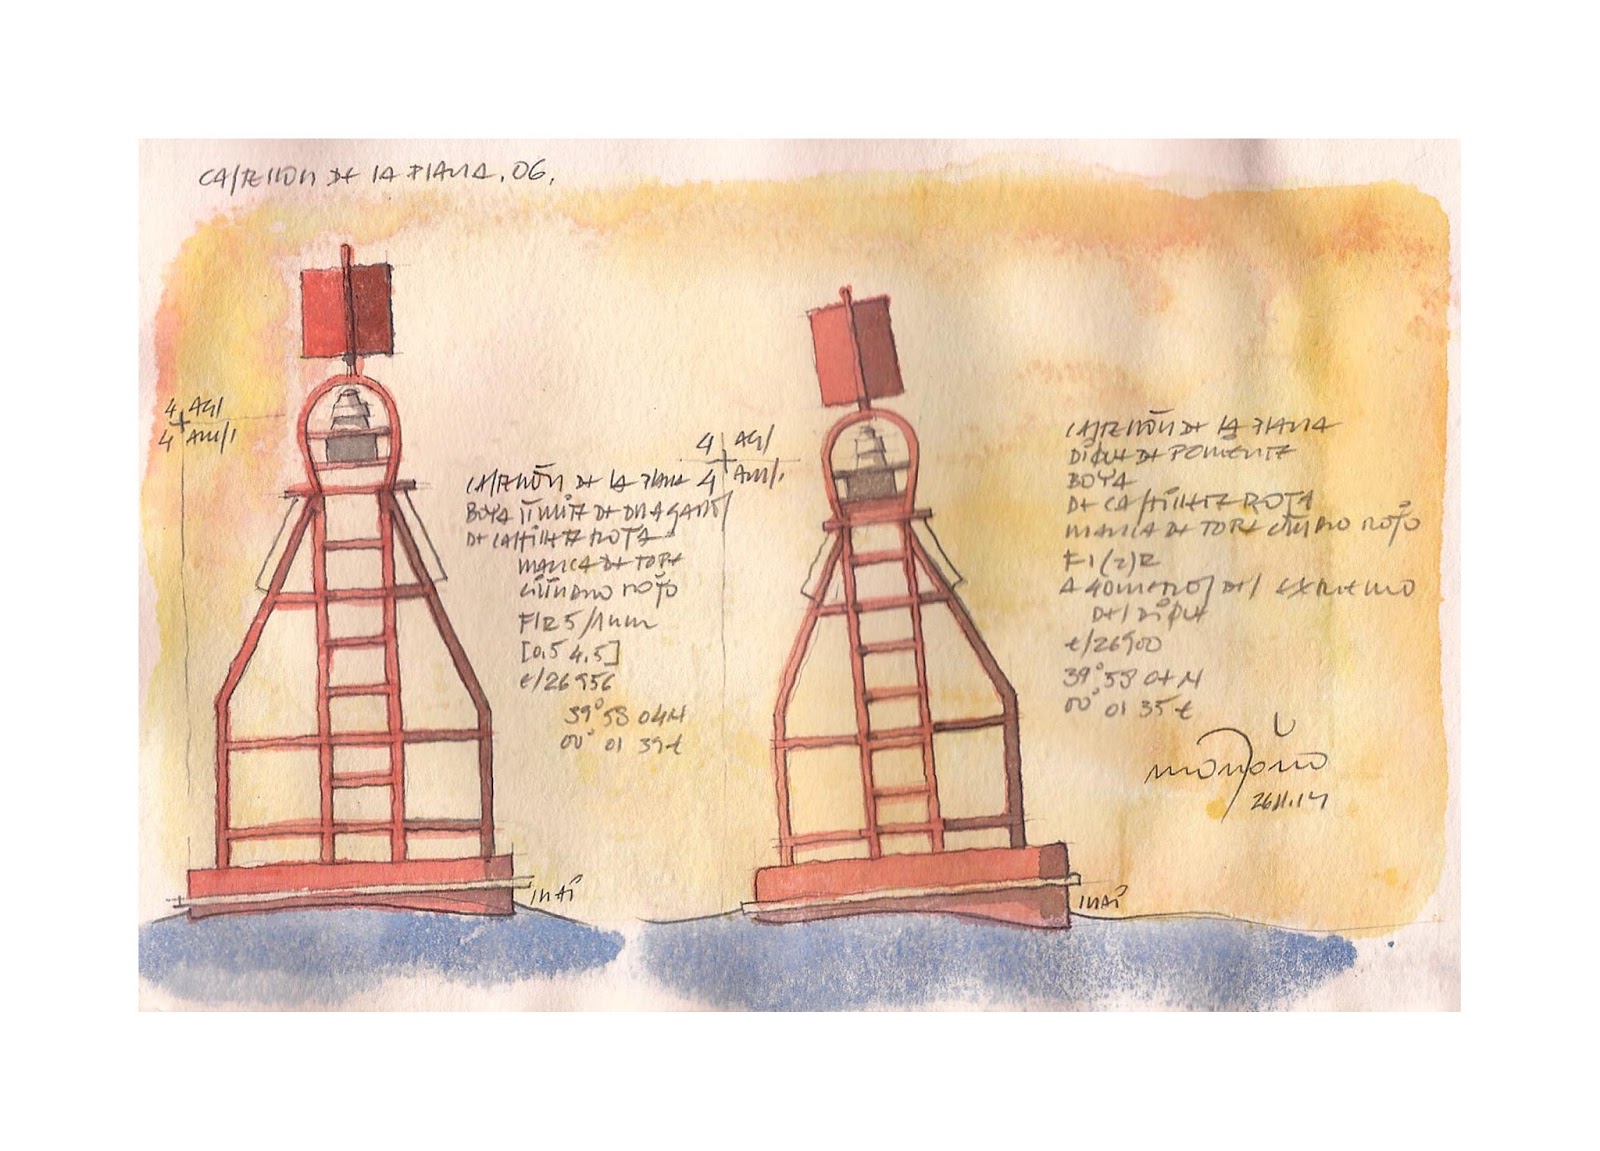 CASTELLON DE LA PLANA. 06.
4 AGI
4 AM/1
CASTELLÓN DE LA PLANA
BOYA LÍMITE DE DRAGADO
DE CASTILLETE ROJA
MARCA DE TOPE
CILINDRO ROJO
Fl R 5/1mm
[0.5 4.5]
E/26956
39° 58 04 N
00° 01 39 E
INAI
4 AGI
4 AM/1.
CASTELLÓN DE LA PLANA
DIQUE DE PONIENTE
BOYA
DE CASTILLETE ROJA
MARCA DE TOPE CILINDRO ROJO
Fl(2)R
A 40 METROS DEL EXTREMO
DEL DIQUE
E/26900
39° 58 04 N
00° 01 35 E
26.11.14
INAI